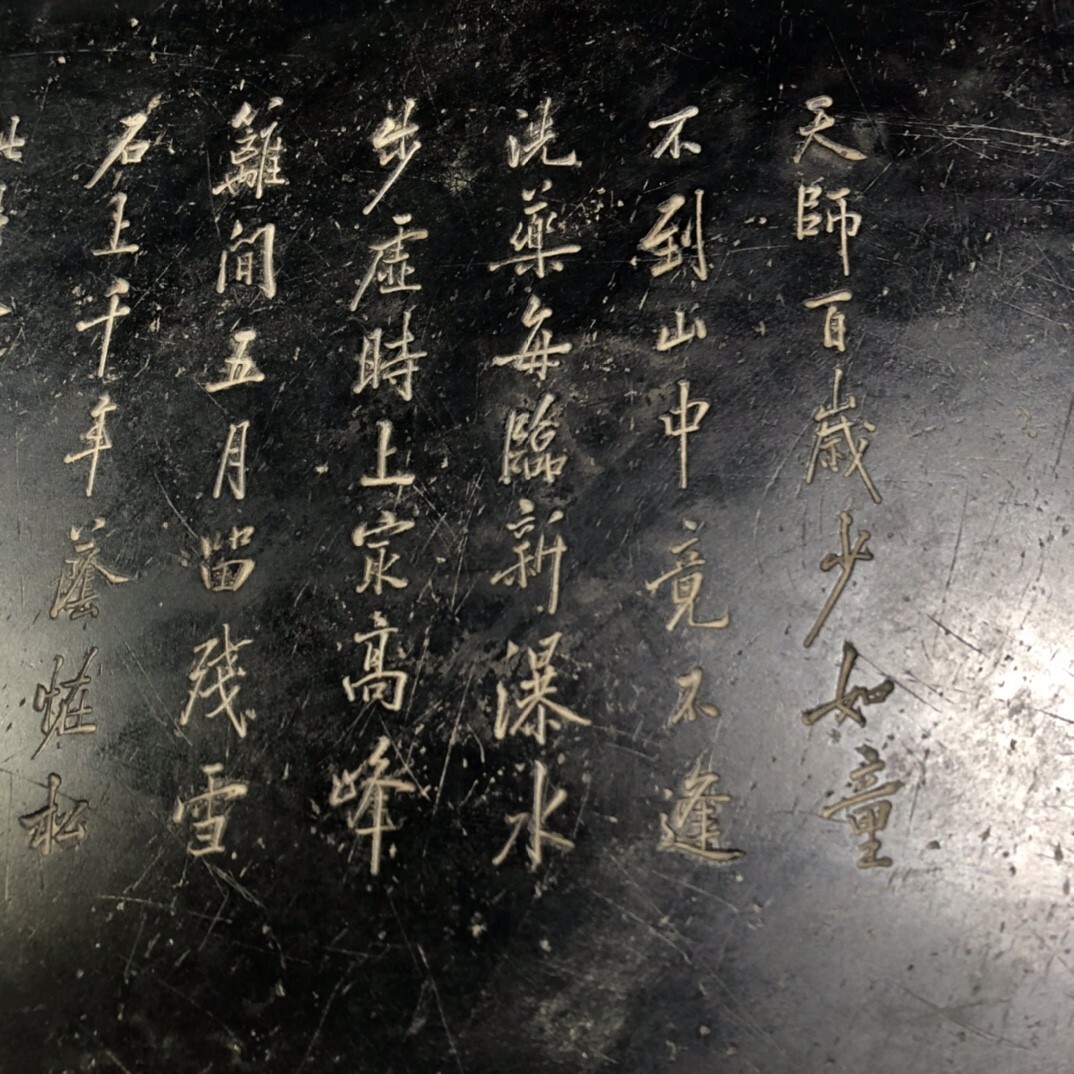 天師百歲少如童
不到山中竟不逢
洗藥每臨新瀑水
步虛時上㝡高峰
籬間五月留殘雪
石上千年蔭恠松